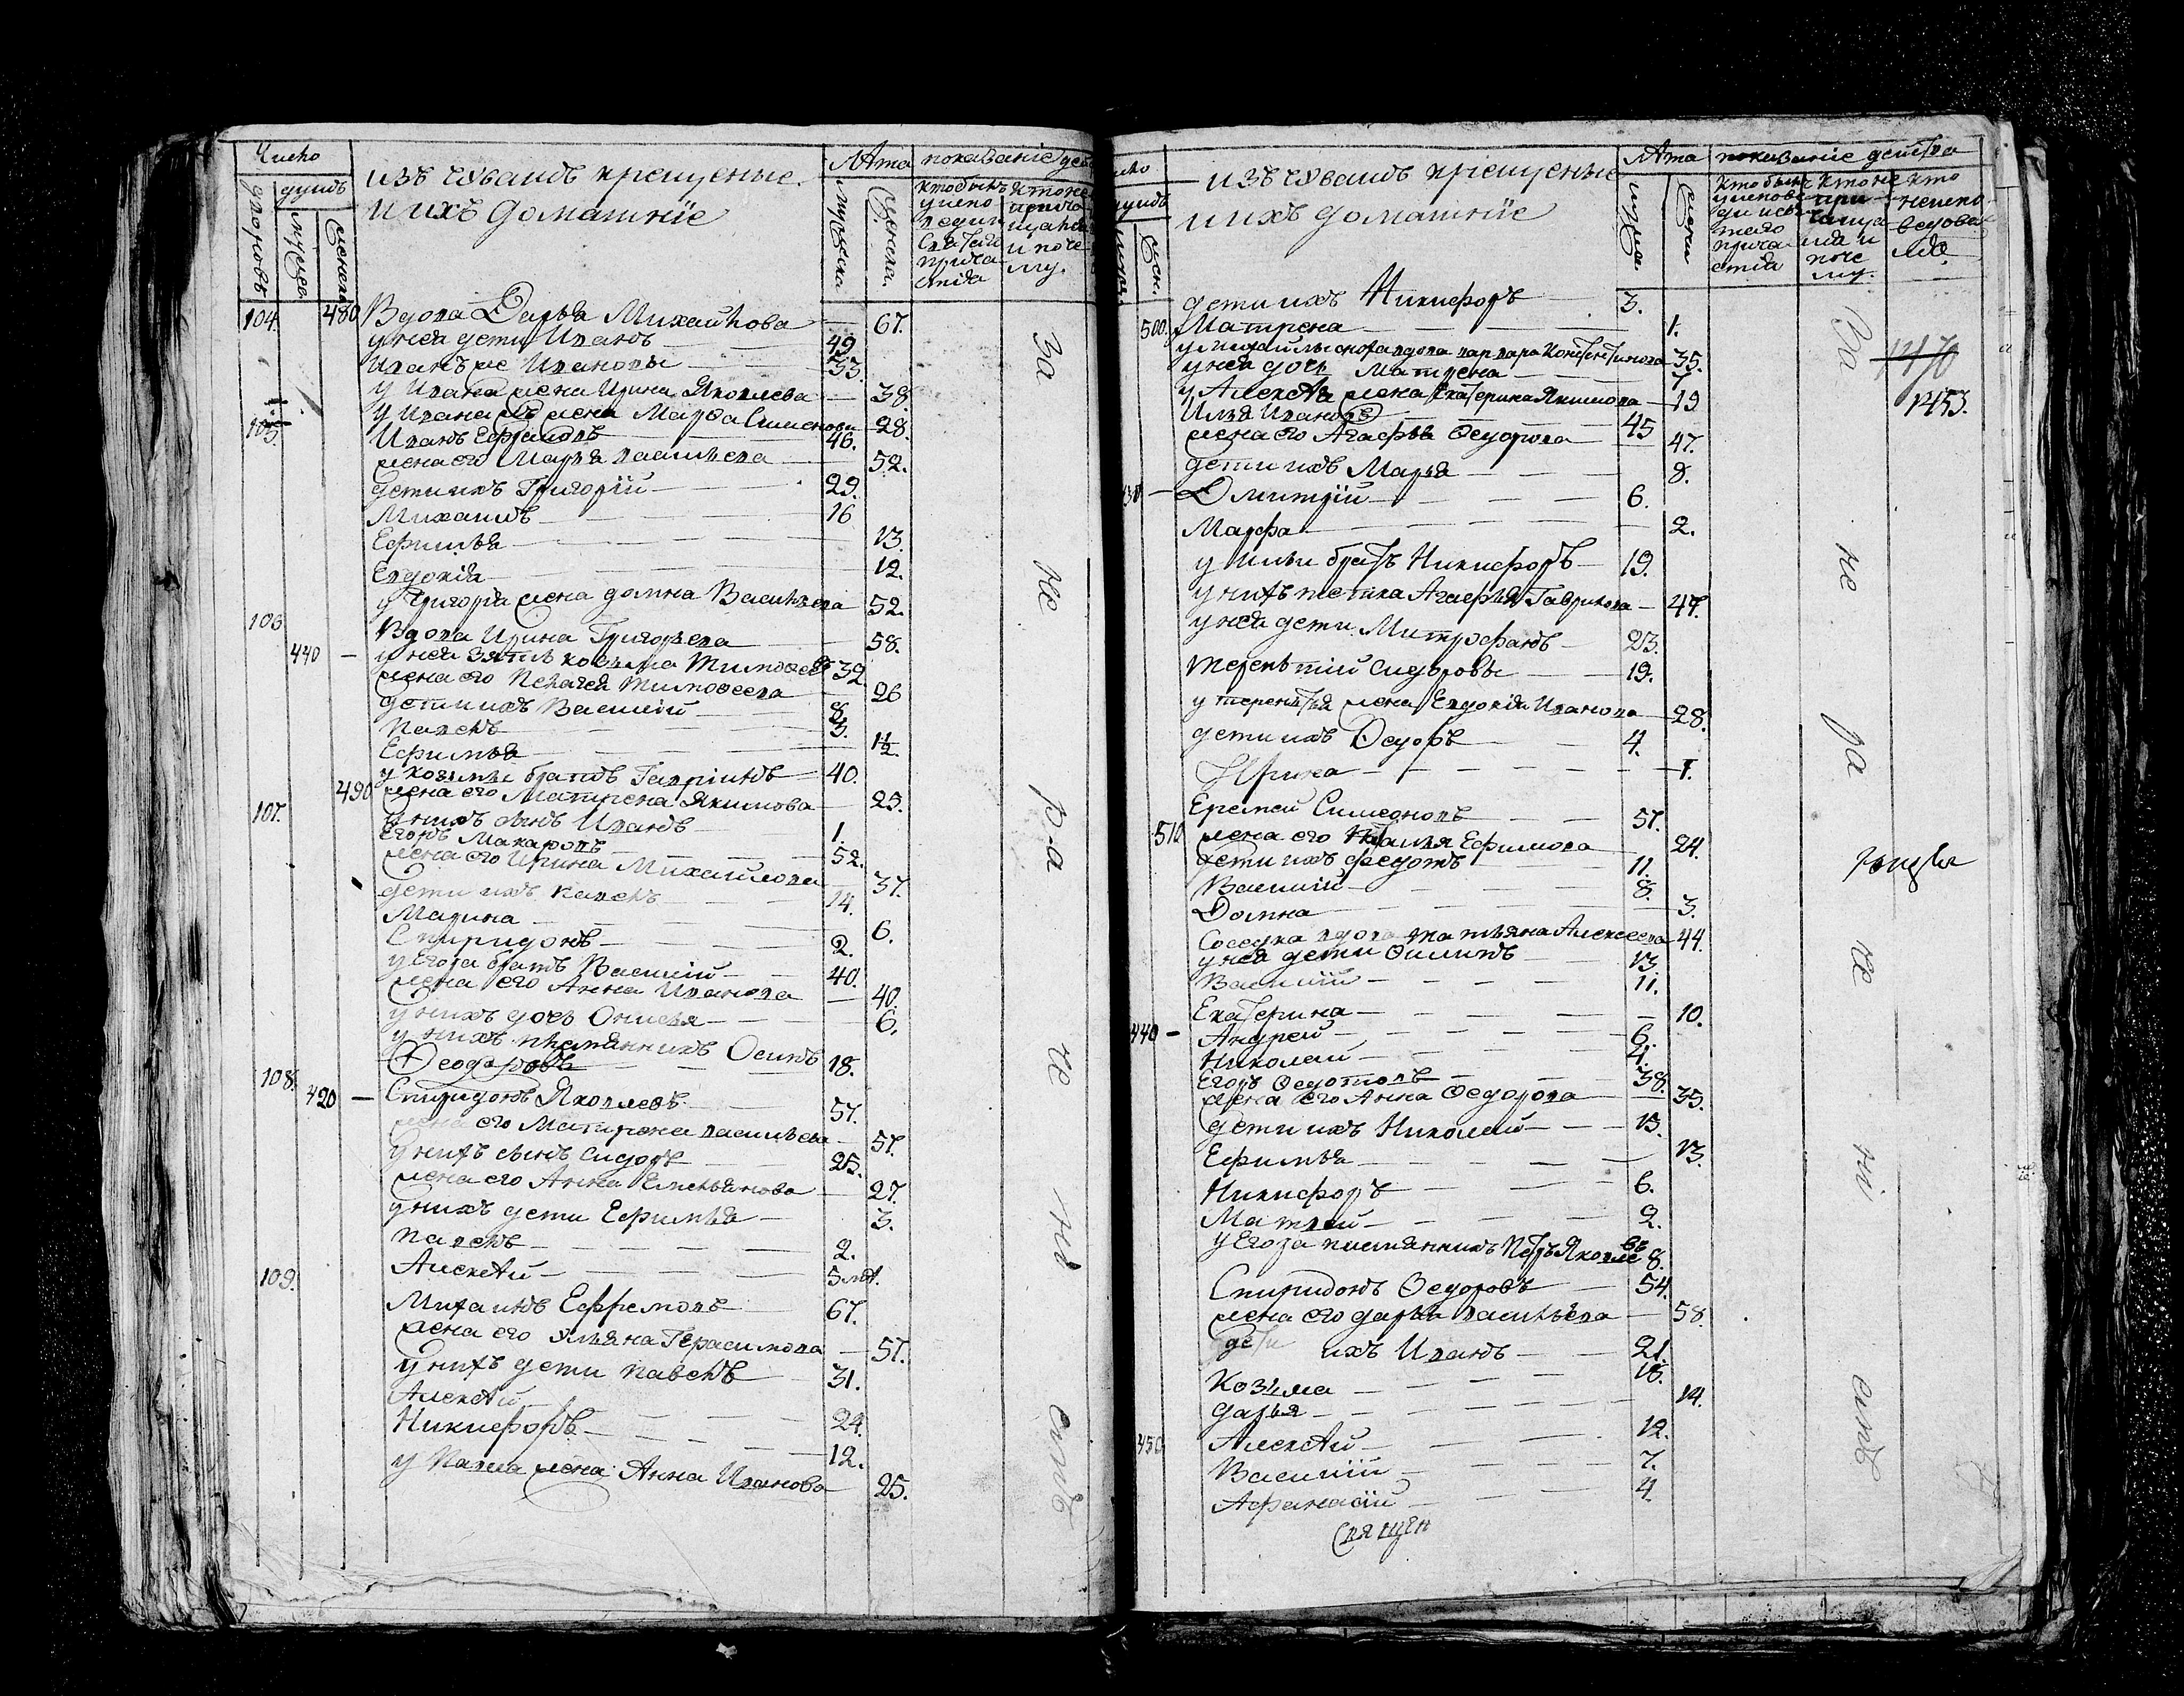 Число
душъ
дворовъ
мужеск
женска
изъ чувашъ крещеные
и ихъ домашнїе
Лѣта
мужеска.
женска.
показанїе дей
Кто былъ у исповеди и святаго причастїя
Кто не причащался и почему.
104. 480 Вдова Дарья Михайлова — 67.
у нея дети Иванъ — 49
Иванъ же Ивановы — 33.
у Ивана жена Ирина Яковлева — 38.
у Ивана жъ жена Марѳа Симионова — 28.
105. Иванъ Ефремовъ — 46.
жена его Марья васильева — 52.
дети ихъ Григорїй — 29.
Михаилъ — 16
Ефимья — 13.
Евдокїя — 12.
у Григорїя жена домна Васильева — 52.
106 Вдова Ирина Григорьева — 58.
440 — у нея зять козьма Тимоѳеевъ 32
жена его Пелагея Тимоѳеева — 26
дети ихъ Василїй — 8.
Павелъ — 3.
Ефимья — 1½.
у козьмы братъ Гаврїилъ — 40.
490 жена его Матрена Якимова — 25.
у нихъ сынъ Иванъ — 1.
107. Егоръ Макаровъ — 52.
жена его Ирина Михайлова — 37.
дети ихъ Павелъ — 14.
Марина — 6.
Спиридонъ — 2.
у Егора братъ Василїй — 40.
жена его Анна Иванова — 40.
у нихъ дочь Онисья — 6.
у нихъ племянникъ Осипъ
Ѳеодоровъ — 18.
108. 420 — Спиридонъ Яковлевъ — 57.
жена его Матрена васильева — 57.
у нихъ сынъ Сидоръ — 25.
жена его Анна Емельянова — 27.
у нихъ дети Ефимья — 3.
Павелъ — 2.
Алексѣй — 5
109. Михаилъ Ефремовъ — 67.
жена его Ульяна Герасимова — 57.
у нихъ дети Павелъ — 31.
Алексѣй
Никифоръ — 24.
— 12.
у Павла жена Анна Иванова — 25.
За не ра че ні емъ
душъ
жен.
изъ чувашъ крещеные
и ихъ домашнїе
Лѣта
показанїе действа
Кто былъ у исповеди и святаго причастїя
Кто не причаща и почему.
Кто не исповедовался
дети ихъ Никифоръ — 3.
500. Матрена — 1.
вдова варвара Константинова 35.
у нея дочь Матрена — 7
у Алексѣя жена Екатерина Якимова — 19
Илья Ивановъ — 45
жена его Агафья Ѳедорова — 47.
дети ихъ Марья — 8.
430 — Дмитрїй — 6.
Марфа — 2.
у Ильи братъ Никифоръ — 19.
у нихъ тетка Агафья Гаврилова — 47.
у нея дети Митрофанъ — 23.
Терентїй Сидоровы — 19.
у терентья жена Евдокїя Иванова — 28.
дети ихъ Ѳедоръ — 4.
Ирина — 1.
Еремей Симеоновъ — 57.
510 жена его Ефимова — 24.
дети ихъ Федотъ — 11.
Василїй — 8.
Домна — 3.
Соседка вдова татьяна Алексеева 44.
у нея дети Филипъ — 13.
Василїй — 11.
Екатерина — 10.
440 — Андрей — 6.
Николай — 4.
Егоръ Ѳедотовъ — 38.
жена его Анна Ѳедорова — 35.
дети ихъ Николай — 13.
Ефимья — 13.
Никифоръ — 6.
Матвей — 2.
у Егора племянникъ Петръ Яковлевъ 8.
Спиридонъ Ѳедоровъ — 54.
жена его дарья васильева — 58.
дети ихъ Иванъ — 21.
Козьма — 18.
дарья — 14.
450 Алексѣй — 12.
Василїй — 7.
Афанасїй — 4.
Священ
За не ра че ні емъ
1470
1453.